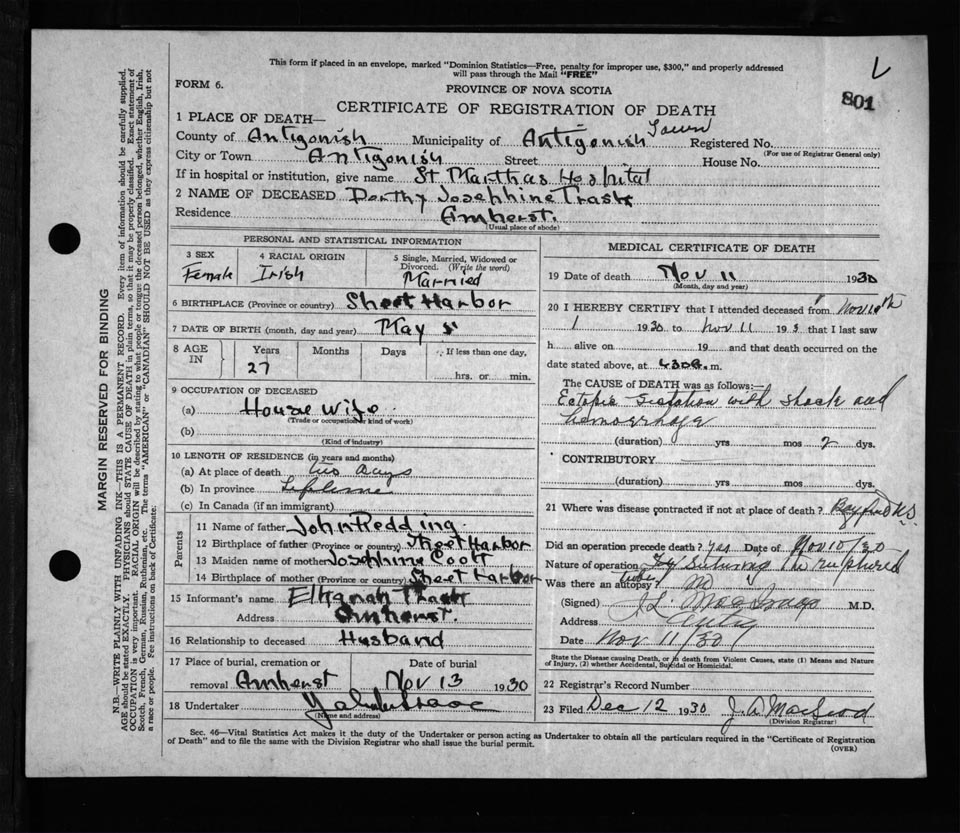 This form if placed in an envelope, marked "Dominion Statistics—Free, penalty for improper use, $300," and properly addressed
will pass through the Mail "FREE"
FORM 6.
PROVINCE OF NOVA SCOTIA
801
CERTIFICATE OF REGISTRATION OF DEATH
1 PLACE OF DEATH—
County of Antigonish Municipality of Antigonish Town Registered No.
(For use of Registrar General only)
City or Town Antigonish Street House No.
If in hospital or institution, give name St Marthas Hospital
2 NAME OF DECEASED Dorthy Josephine Trask
Residence Amherst.
(Usual place of abode)
PERSONAL AND STATISTICAL INFORMATION
3 SEX
Female
4 RACIAL ORIGIN
Irish
5 Single, Married, Widowed or
Divorced. (Write the word)
Married
6 BIRTHPLACE (Province or country) Sheet Harbor
7 DATE OF BIRTH (month, day and year) May
8 AGE
IN
Years
27
Months
Days
If less than one day,
hrs. or min.
9 OCCUPATION OF DECEASED
(a) House Wife
(Trade or occupation or kind of work)
(b)
(Kind of industry)
10 LENGTH OF RESIDENCE (in years and months)
(a) At place of death two days
(b) In province Lifetime
(c) In Canada (if an immigrant)
Parents
11 Name of father John Redding
12 Birthplace of father (Province or country) Sheet Harbor
13 Maiden name of mother Josephine
14 Birthplace of mother (Province or country) Sheet Harbor
15 Informant's name Elkanah Trask
Address Amherst.
16 Relationship to deceased Husband
17 Place of burial, cremation or
removal Amherst
Date of burial
Nov 13 1930
18 Undertaker
(Name and address)
MEDICAL CERTIFICATE OF DEATH
19 Date of death Nov 11 1930
(Month, day and year)
20 I HEREBY CERTIFY that I attended deceased from Nov 10th
1930 to Nov 11 193 that I last saw
h alive on 19 and that death occurred on the
date stated above, at 430a.m.
The CAUSE OF DEATH was as follows:—
Ectopic Gestation with shock and
hemorrhage
(duration) yrs mos 2 dys.
CONTRIBUTORY
(duration) yrs mos dys.
21 Where was disease contracted if not at place of death?
Did an operation precede death? yes Date of Nov 10/30
Nature of operation suturing the ruptured
tube
Was there an autopsy? no
(Signed) M.D.
Address
Date Nov 11/30
State the Disease causing Death, or in death from Violent Causes, state (1) Means and Nature
of Injury, (2) whether Accidental, Suicidal or Homicidal.
22 Registrar's Record Number
23 Filed Dec 12 1930 J. A. MacLeod
(Division Registrar)
Sec. 46—Vital Statistics Act makes it the duty of the Undertaker or person acting as Undertaker to obtain all the particulars required in the "Certificate of Registration
of Death" and to file the same with the Division Registrar who shall issue the burial permit.
(OVER)
MARGIN RESERVED FOR BINDING
N.B.—WRITE PLAINLY WITH UNFADING INK—THIS IS A PERMANENT RECORD. Every item of information should be carefully supplied.
AGE should be stated EXACTLY. PHYSICIANS should STATE CAUSE OF DEATH in plain terms, so that it may be properly classified. Exact statement of
OCCUPATION is very important. RACIAL ORIGIN will be described by stating to what people or tongue the deceased person belonged, whether English, Irish,
Scotch, French, German, Russian, Ruthenian, etc. The terms "AMERICAN" or "CANADIAN" SHOULD NOT BE USED as they express citizenship but not
a race or people. Fee instructions on back of Certificate.